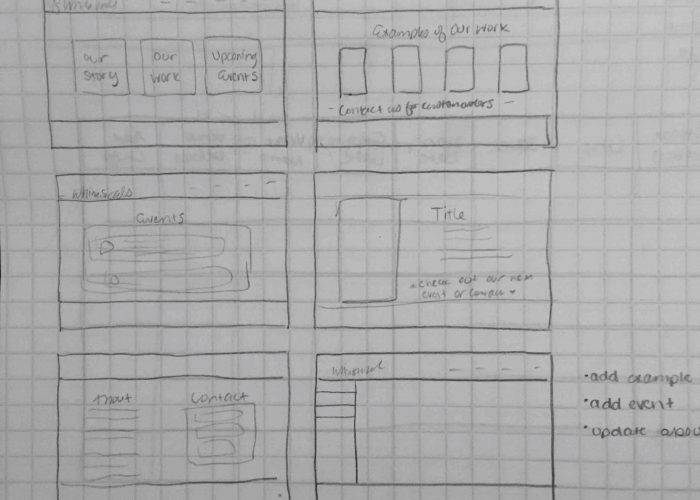 our
story
our
work
Upcoming
events
Examples of our work
- Contact us for custom orders -
Whimsicals
events
Title
check out our new
event or contact
About
Contact
• add example
• add event
• update abou